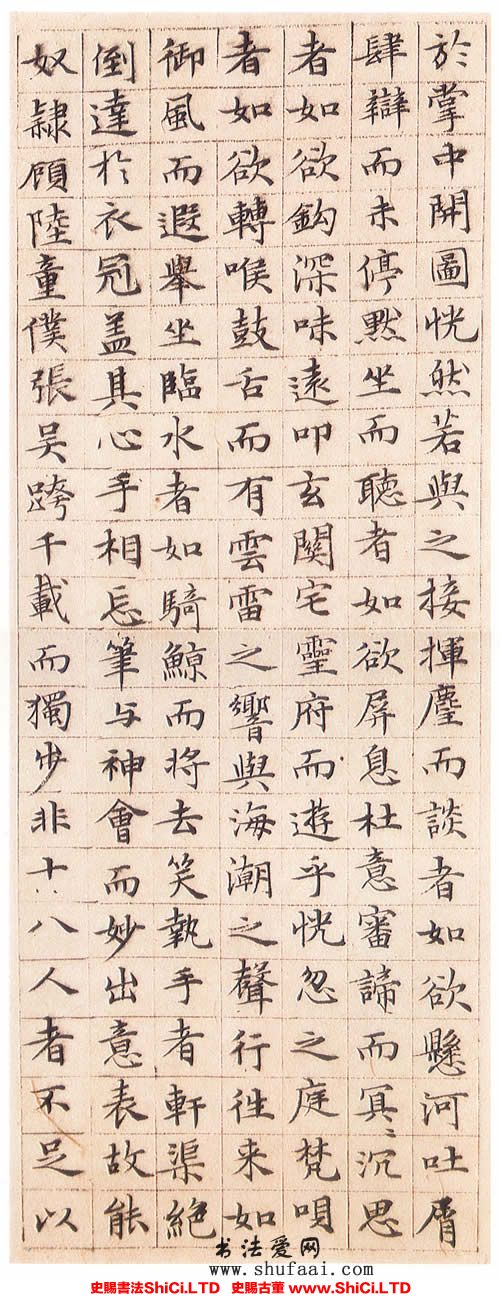 於掌中開圖恍然若與之接揮麈而談者如欲懸河吐屑
肆辯而未停默坐而聽者如欲屏息杜意審諦而冥〻沉思
者如欲鈎深味遠叩玄關宅靈府而遊乎恍忽之庭梵唄
者如欲轉喉鼓舌而有雲雷之響與海潮之聲行往来如
御風而遐舉坐臨水者如騎鯨而将去笑執手者軒渠絕
倒達於衣冠盖其心手相忘筆与神會而妙出意表故能
奴隸顧陸童僕張吴跨千載而獨步非十八人者不足以
书法爱网
www.shufaai.com
史賜書法ShiCi.LTD 史賜古董 www.ShiCi.LTD